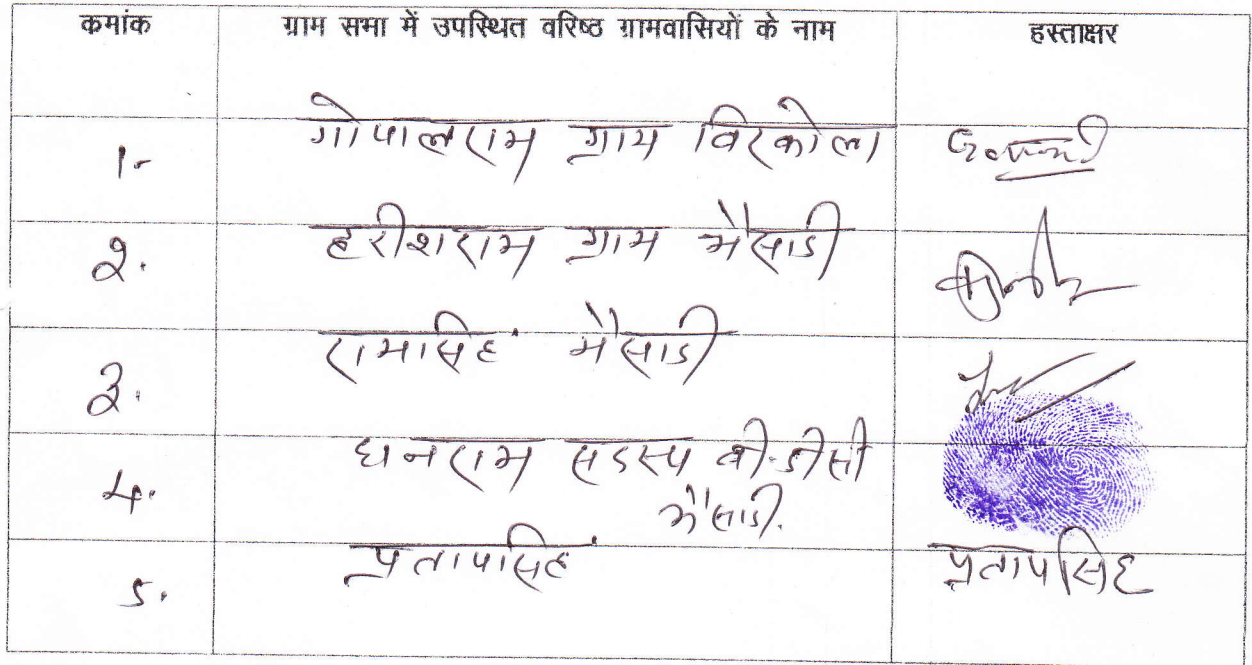 कमांक ग्राम सभा में उपस्थित वरिष्ठ ग्रामवासियों के नाम हस्ताक्षर
1- गोपालराम ग्राम विरकोला
2. हरीशराम ग्राम भैसाडी
3. रामसिंह भैसाडी
4. धनराम सदस्य बी.डीसी
भैसाडी.
5. प्रतापसिंह प्रतापसिंह